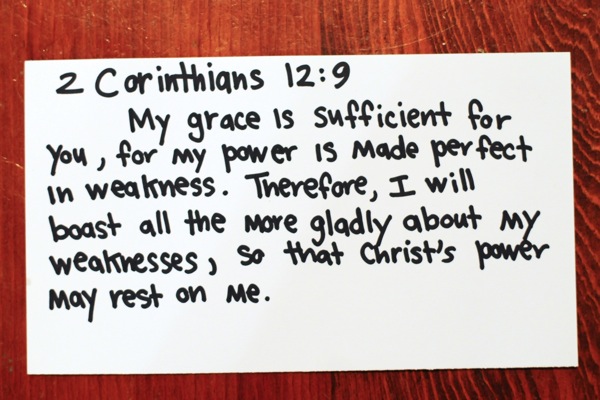 2 Corinthians 12:9
My grace is sufficient for
you, for my power is made perfect
in weakness. Therefore, I will
boast all the more gladly about my
weaknesses, so that Christ's power
may rest on me.